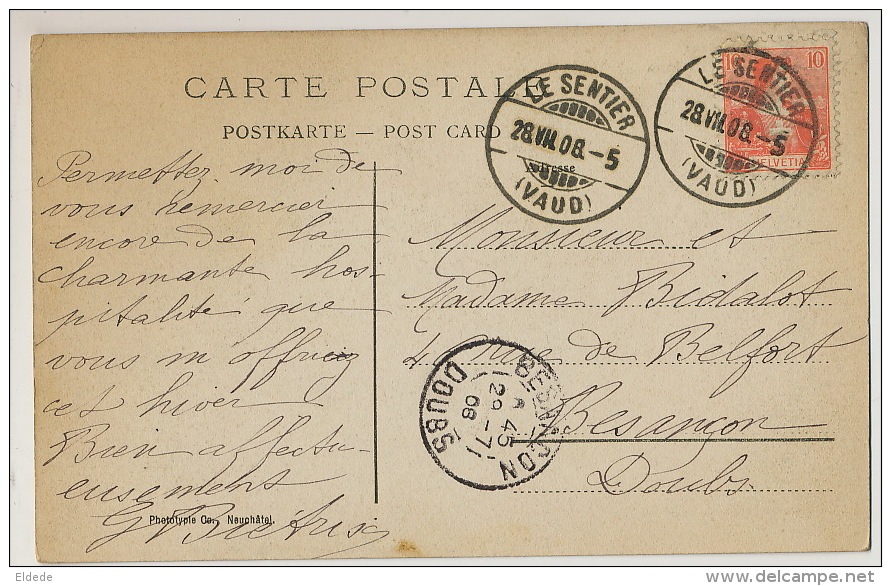 CARTE POSTALE
POSTKARTE — POST CARD
Adresse
LE SENTIER
28.VII.08.-5
(VAUD)
LE SENTIER
28.VII.08.-5
(VAUD)
10 10
HELVETIA
Permettez moi de
vous remercier
encore de la
charmante hos-
pitalité que
vous m'offriez
cet hiver
Bien affectu-
eusement
G Biétrix
Monsieur et
Madame Bidalot
4 rue de Belfort
Besançon
Doubs
BESANÇON
A 45
29-7
08
DOUBS
Phototypie Co., Neuchâtel.
Eldede
www.delcampe.net